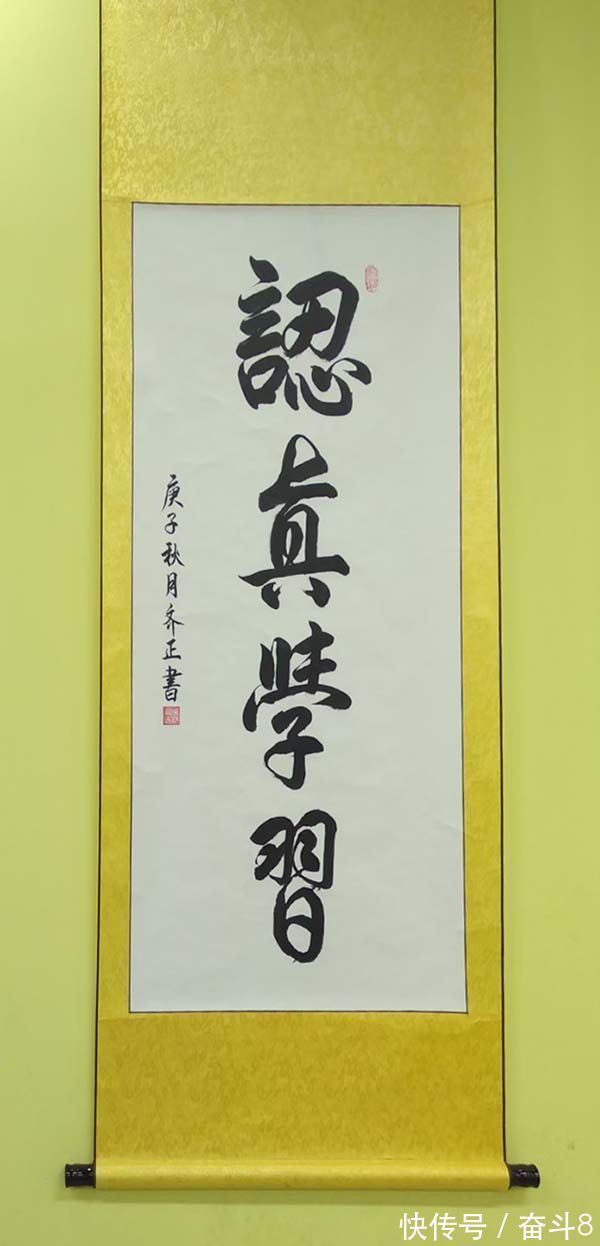 認真學習
庚子秋月齐正書
快传号 / 奋斗8